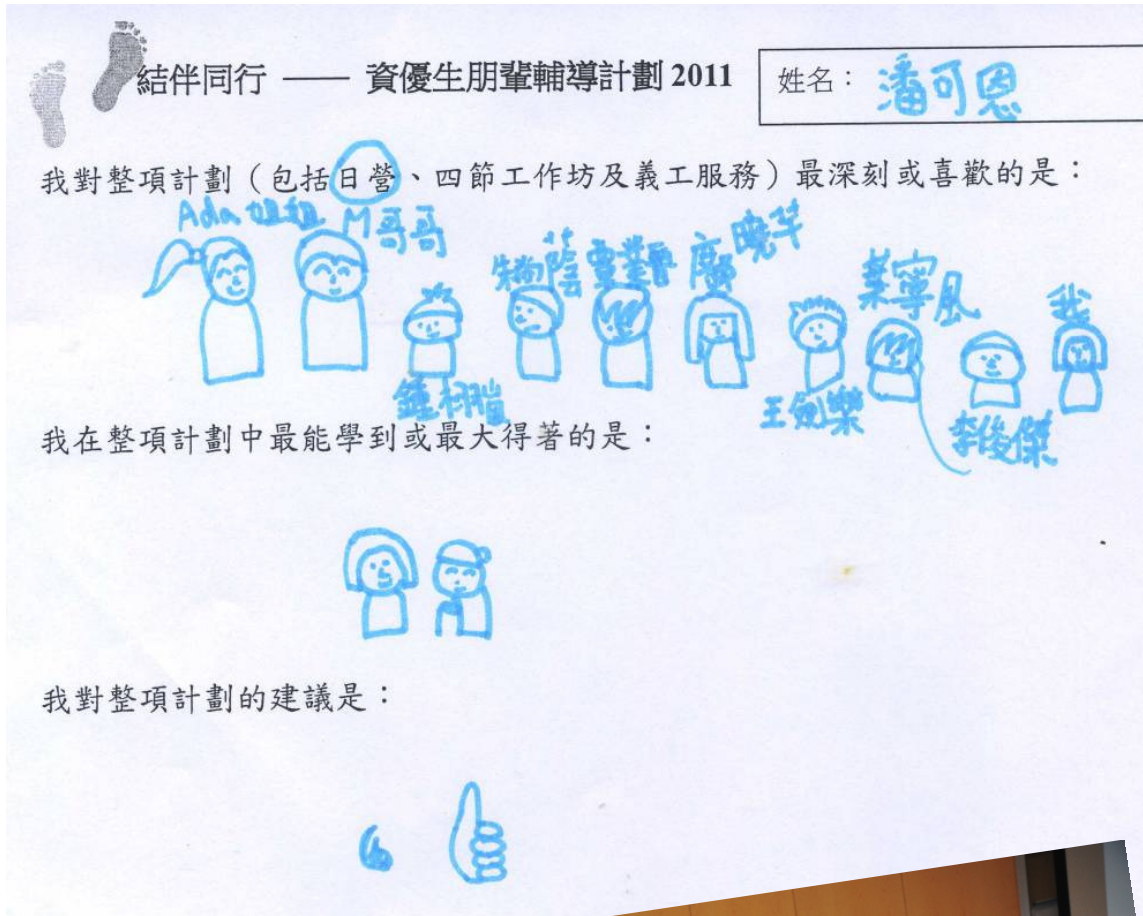 結伴同行 —— 資優生朋輩輔導計劃 2011
姓名：潘可恩
我對整項計劃（包括日營、四節工作坊及義工服務）最深刻或喜歡的是：
Ada 姐姐 M哥哥
曉華
葉寧風
我
王 樂
李俊傑
我在整項計劃中最能學到或最大得著的是：
我對整項計劃的建議是：